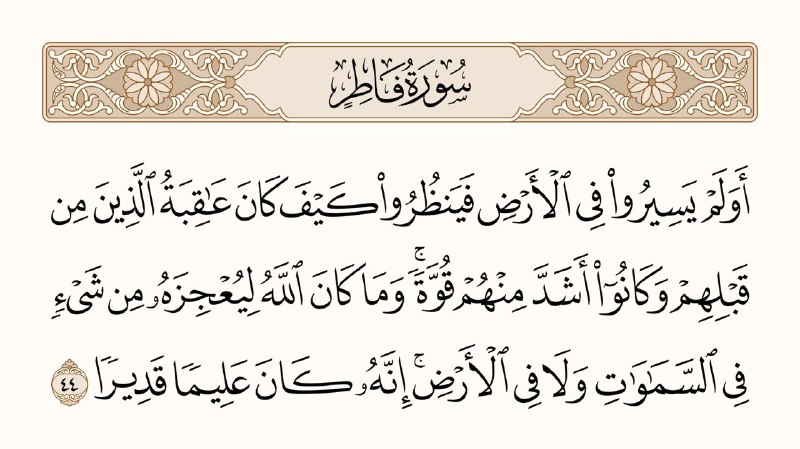 سُورَةُ فَاطِرٍ
أَوَلَمْ يَسِيرُوا۟ فِى ٱلْأَرْضِ فَيَنظُرُوا۟ كَيْفَ كَانَ عَـٰقِبَةُ ٱلَّذِينَ مِن
قَبْلِهِمْ وَكَانُوٓا۟ أَشَدَّ مِنْهُمْ قُوَّةً ۚ وَمَا كَانَ ٱللَّهُ لِيُعْجِزَهُۥ مِن شَىْءٍ
فِى ٱلسَّمَـٰوَٰتِ وَلَا فِى ٱلْأَرْضِ ۚ إِنَّهُۥ كَانَ عَلِيمًا قَدِيرًا ٤٤